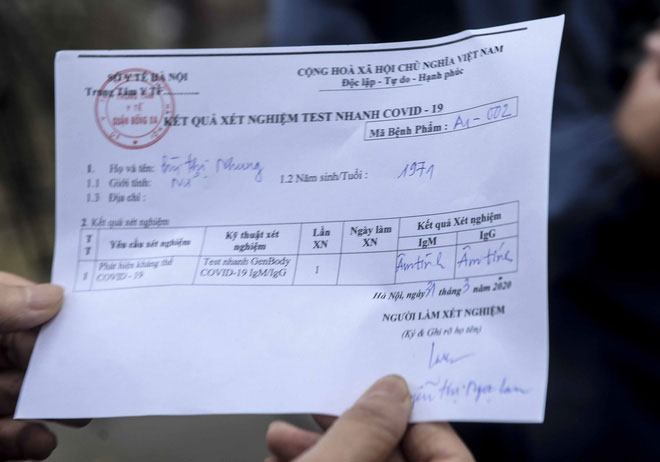 SỞ Y TẾ HÀ NỘI
Trung Tâm Y Tế
CỘNG HOÀ XÃ HỘI CHỦ NGHĨA VIỆT NAM
Độc lập - Tự do - Hạnh phúc
Y TẾ
QUẬN ĐỐNG ĐA
KẾT QUẢ XÉT NGHIỆM TEST NHANH COVID - 19
Mã Bệnh Phẩm : A1 - 002
1. Họ và tên: Thị Nhung
1.1 Giới tính: Nữ 1.2 Năm sinh/Tuổi : 1971
1.3 Địa chỉ :
2. Kết quả xét nghiệm
TT Yêu cầu xét nghiệm Kỹ thuật xét nghiệm Lần XN Ngày làm XN Kết quả Xét nghiệm
IgM IgG
1 Phát hiện kháng thể COVID - 19 Test nhanh GenBody COVID-19 IgM/IgG 1 Âm tính Âm tính
Hà Nội, ngày 31 tháng 3 năm 2020
NGƯỜI LÀM XÉT NGHIỆM
(Ký & Ghi rõ họ tên)
Thị Ngọc Lan